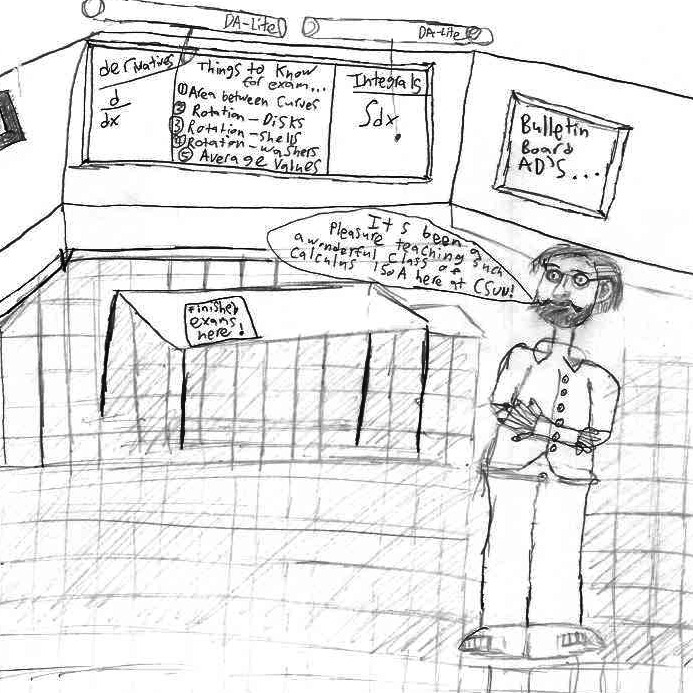 DA-Lite
DA-Lite
derivatives
d
dx
Things to Know
for exam...
① Area between Curves
② Rotation - Disks
③ Rotation - Shells
④ Rotation - washers
⑤ Average Values
Integrals
∫dx
Bulletin
Board
AD'S...
It's been a
Pleasure teaching such
a wonderful class of
Calculus 150A here at CSUN!
finished
exams
here!